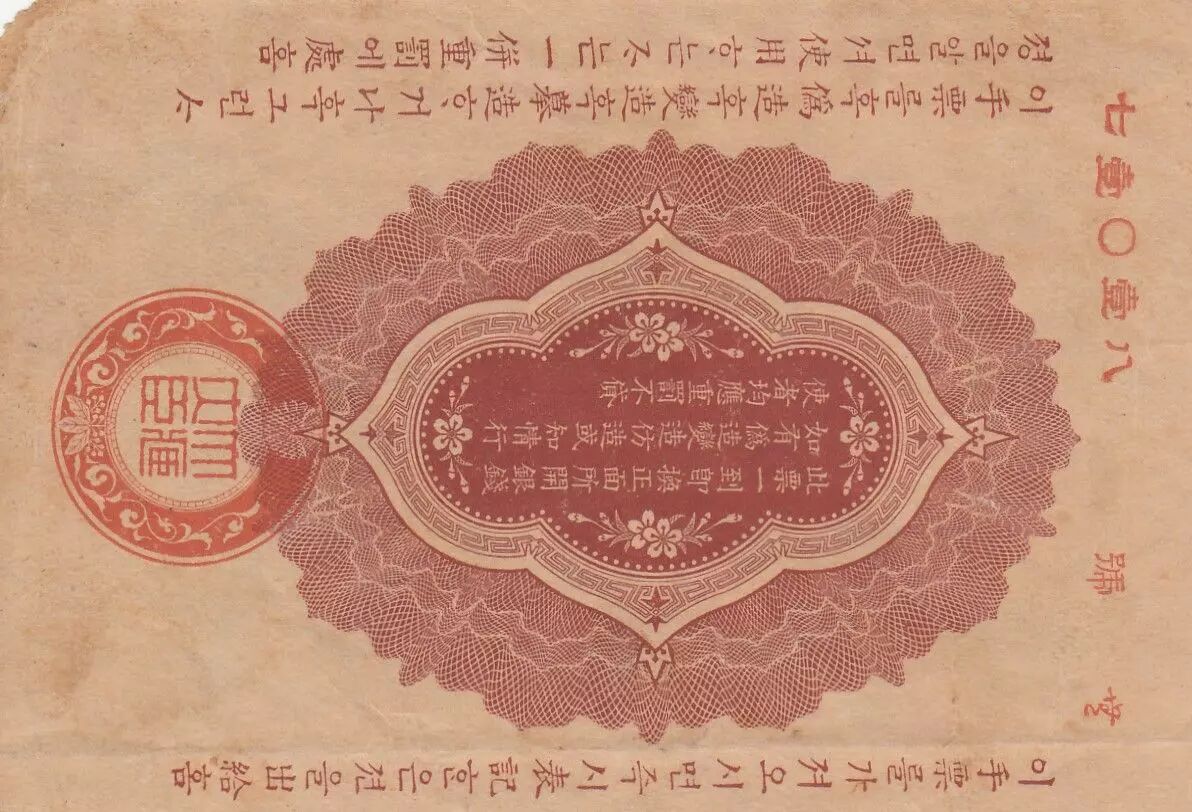 號 八壹〇壹七
이手票를가져오시면즉시表記ᄒᆞᆫ은젼을出給홈
此票一到即換正面所開銀錢
如有僞造變造仿造或知情行
使者均應重罰不貸
이手票를혹僞造혹變造혹摹造ᄒᆞ거나혹그런ᄉ
졍을알면셔使用ᄒᆞᄂᆞᆫᄌᆞᄂᆞᆫ一倂重罰에處홈